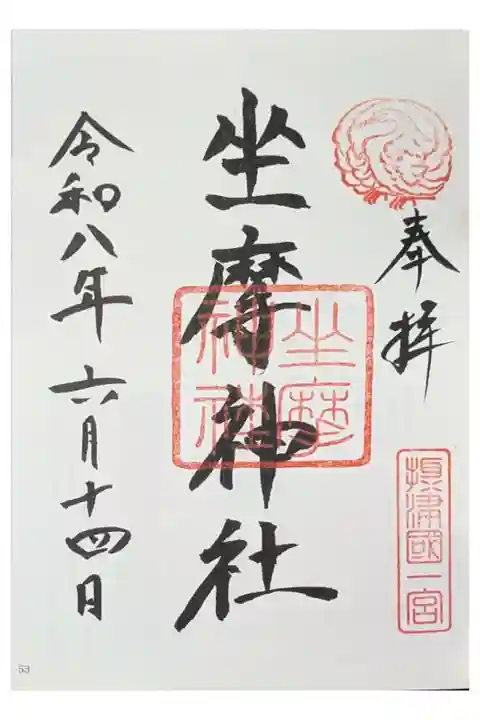 奉拝
摂津國一宮
坐摩神社
坐摩神社
令和八年六月十四日
53